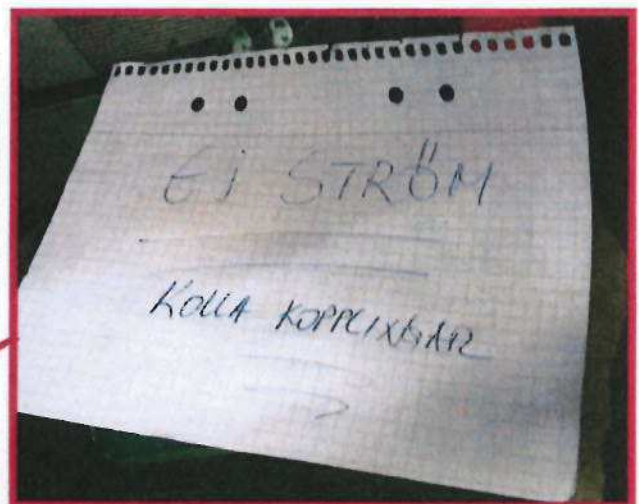 EJ STRÖM
KOLLA KOPPLINGAR